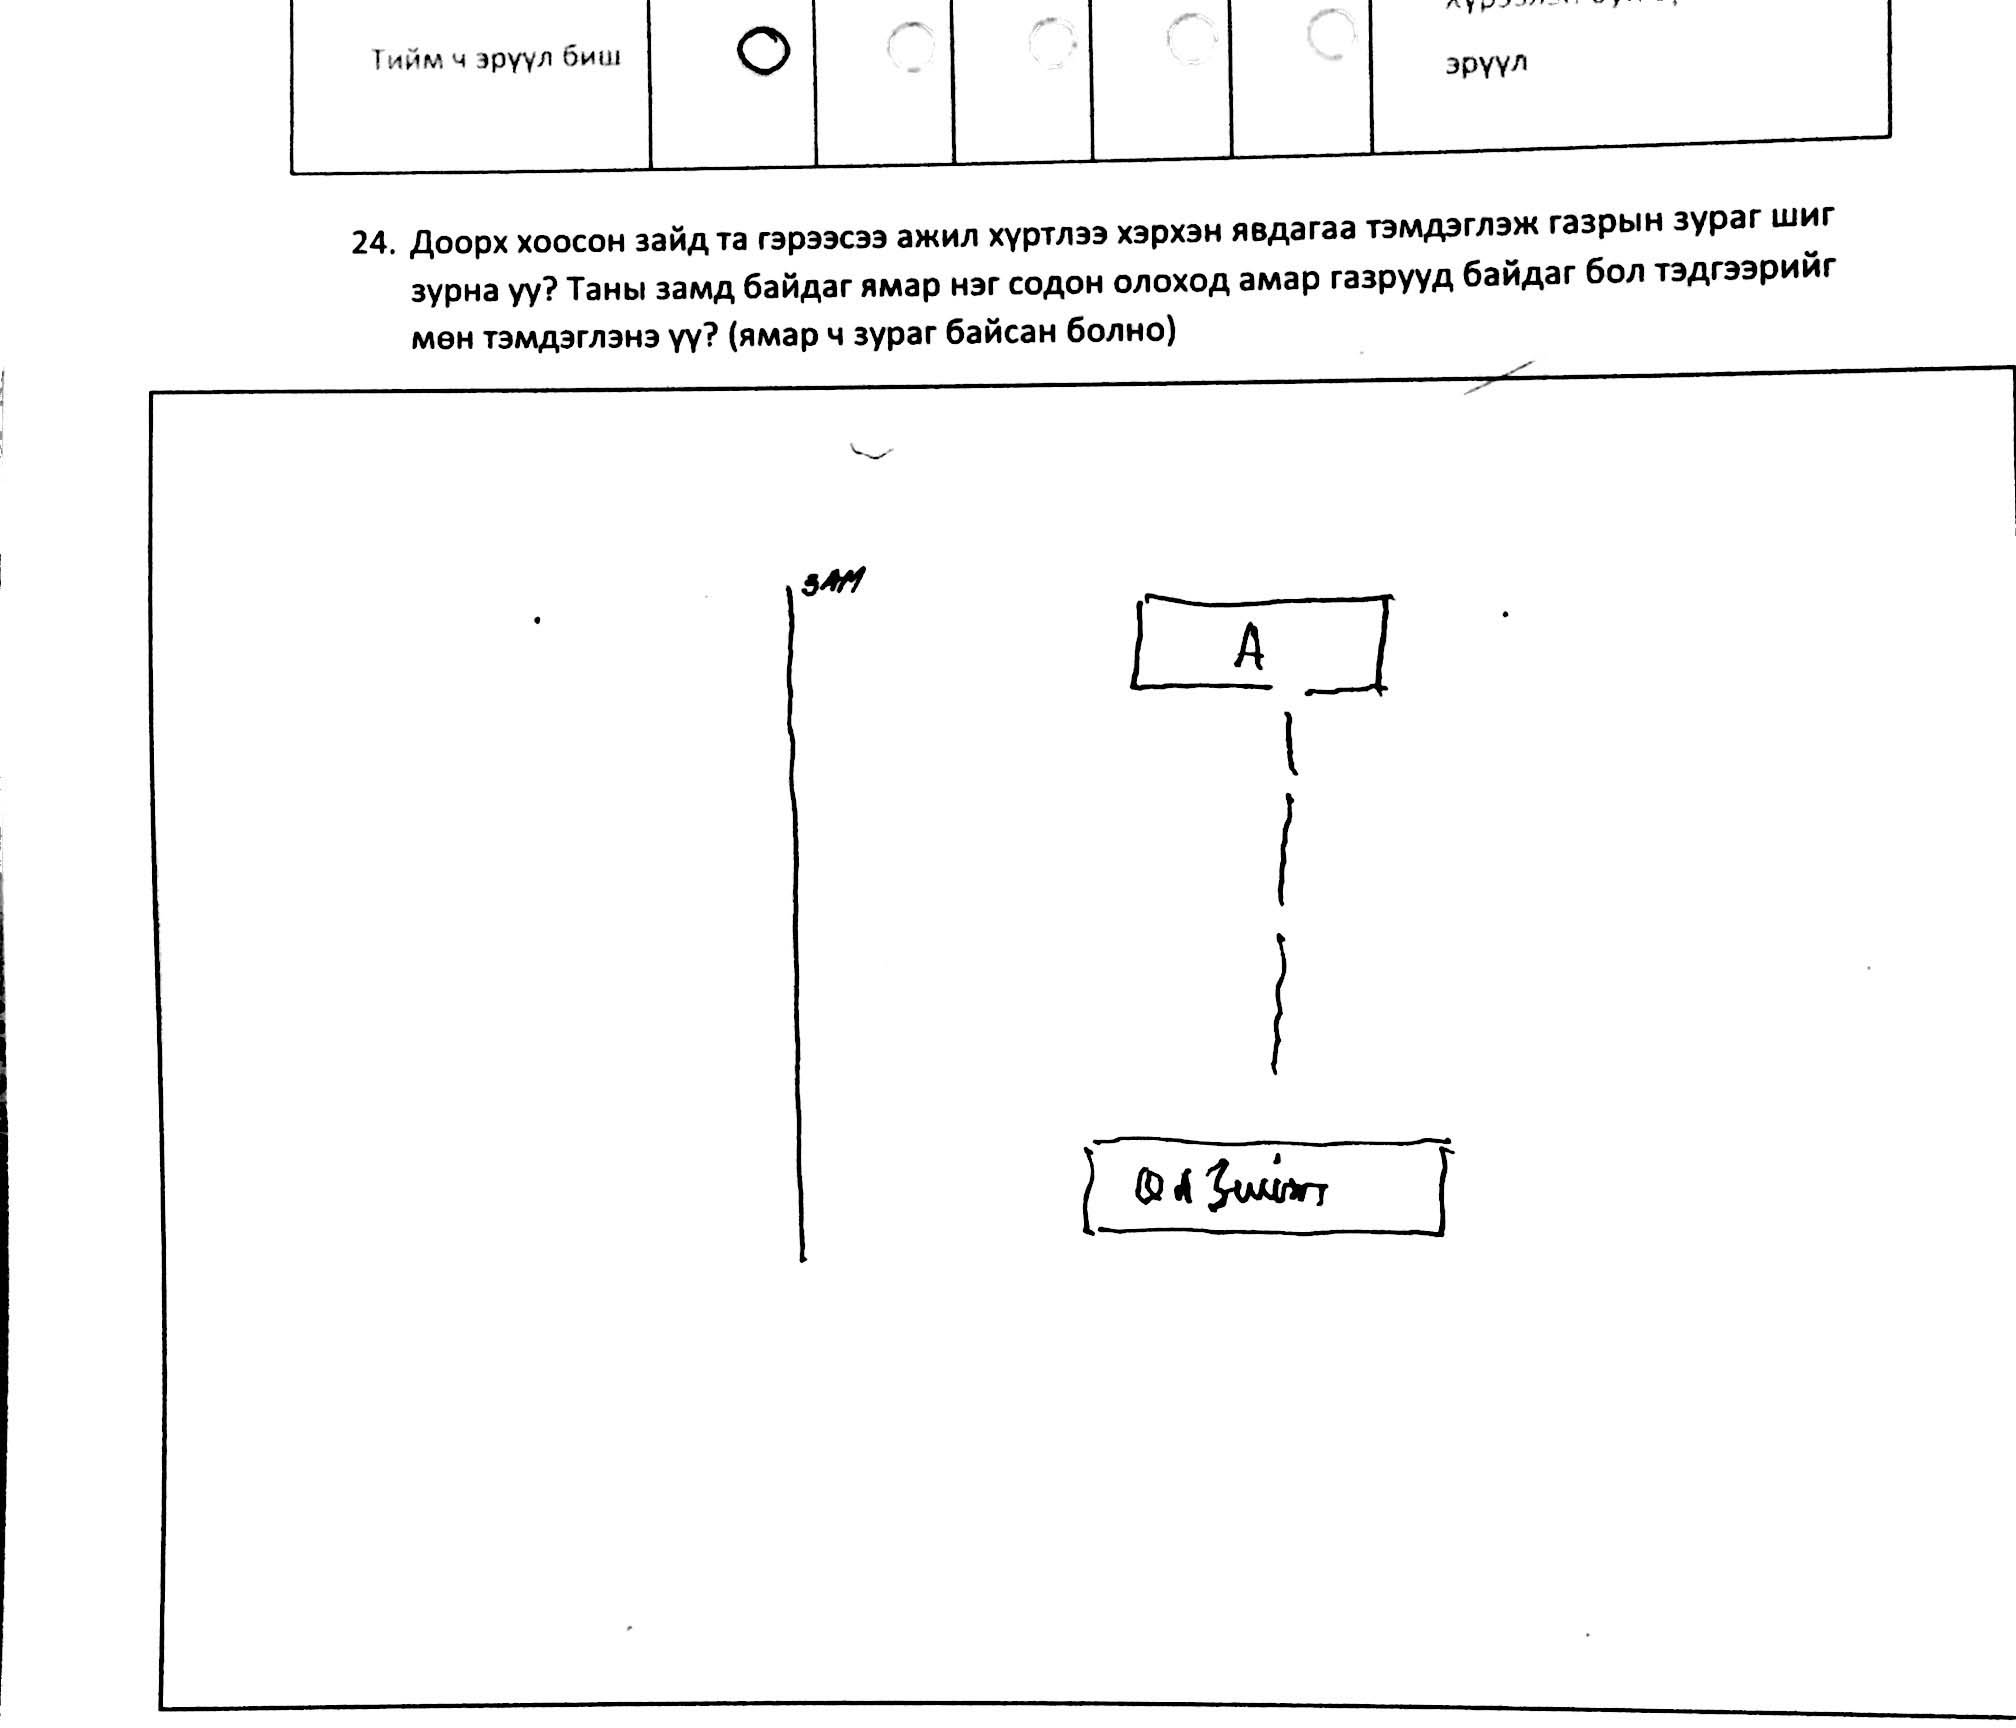 Тийм ч эрүүл биш
эрүүл
24. Доорх хоосон зайд та гэрээсээ ажил хүртлээ хэрхэн явдагаа тэмдэглэж газрын зураг шиг
зурна уу? Таны замд байдаг ямар нэг содон олоход амар газрууд байдаг бол тэдгээрийг
мөн тэмдэглэнэ үү? (ямар ч зураг байсан болно)
ЗАМ
А